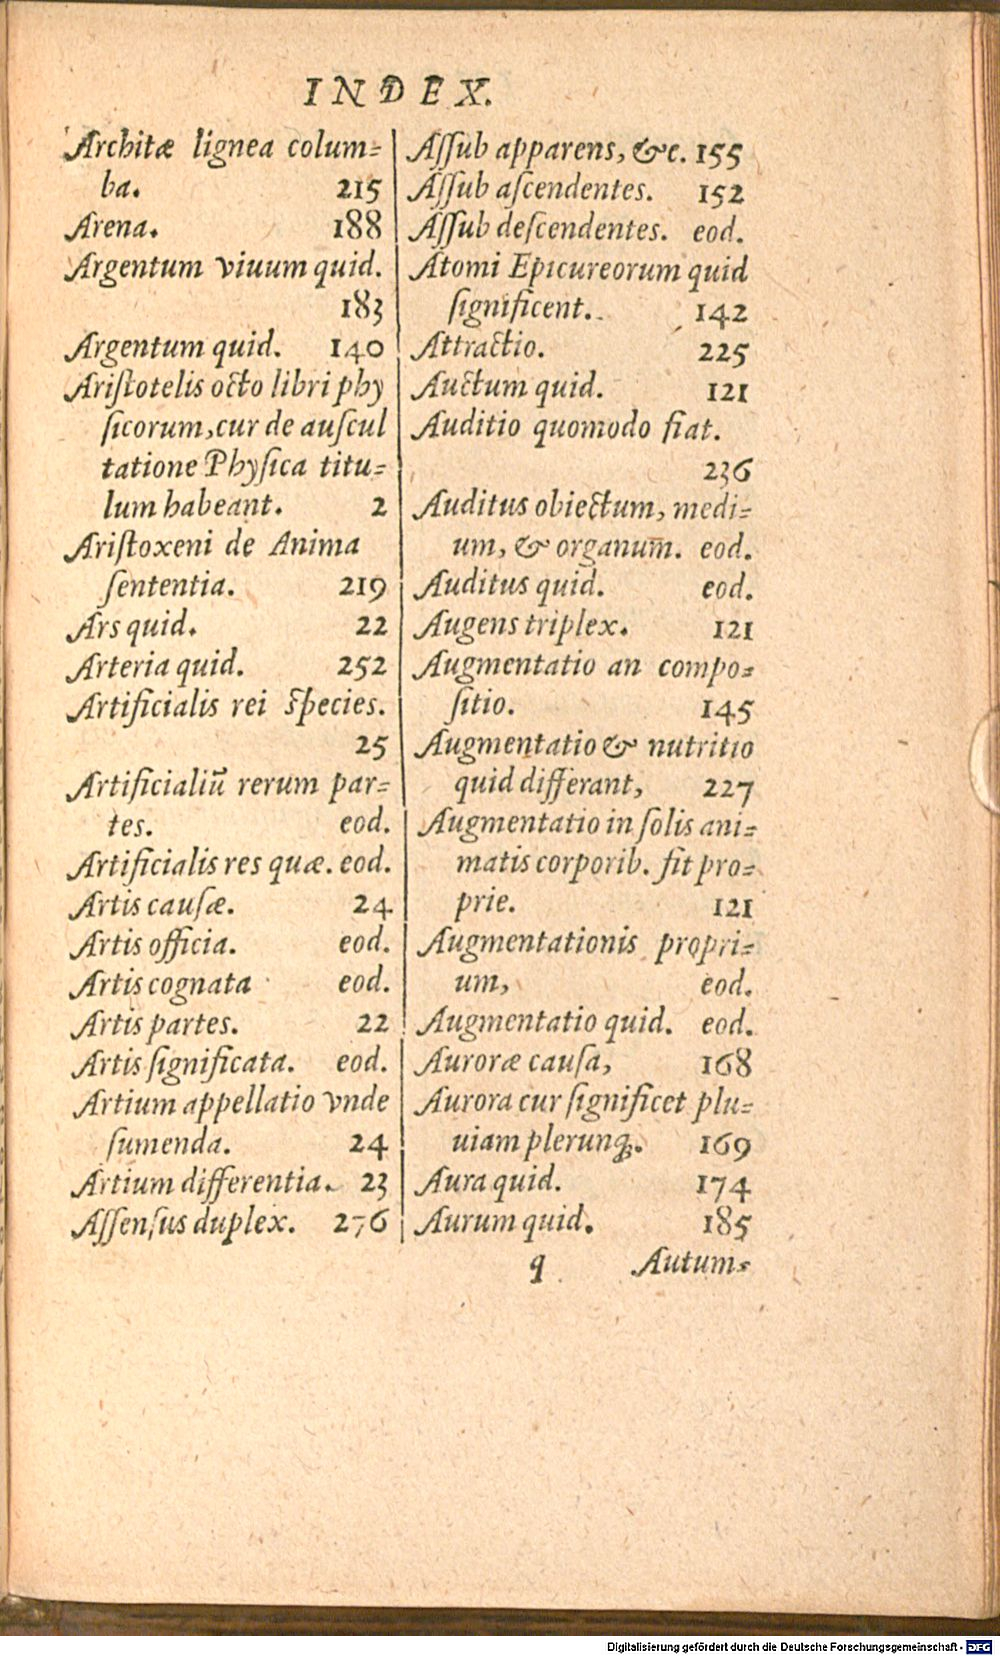 INDEX.
Architæ lignea colum-
ba. 215
Arena. 188
Argentum viuum quid.
183
Argentum quid. 140
Aristotelis octo libri phy
sicorum, cur de auscul
tatione Physica titu-
lum habeant. 2
Aristoxeni de Anima
sententia. 219
Ars quid. 22
Arteria quid. 252
Artificialis rei species.
25
Artificialiū rerum par-
tes. eod.
Artificialis res quæ. eod.
Artis causæ. 24
Artis officia. eod.
Artis cognata eod.
Artis partes. 22
Artis significata. eod.
Artium appellatio vnde
sumenda. 24
Artium differentia. 23
Assensus duplex. 276
Assub apparens, &c. 155
Assub ascendentes. 152
Assub descendentes. eod.
Atomi Epicureorum quid
significent. 142
Attractio. 225
Auctum quid. 121
Auditio quomodo fiat.
236
Auditus obiectum, medi-
um, & organum̄. eod.
Auditus quid. eod.
Augens triplex. 121
Augmentatio an compo-
sitio. 145
Augmentatio & nutritio
quid differant, 227
Augmentatio in solis ani-
matis corporib. fit pro-
prie. 121
Augmentationis propri-
um, eod.
Augmentatio quid. eod.
Auroræ causa, 168
Aurora cur significet plu-
uiam plerunq;. 169
Aura quid. 174
Aurum quid. 185
q Autum-
Digitalisierung gefördert durch die Deutsche Forschungsgemeinschaft - DFG